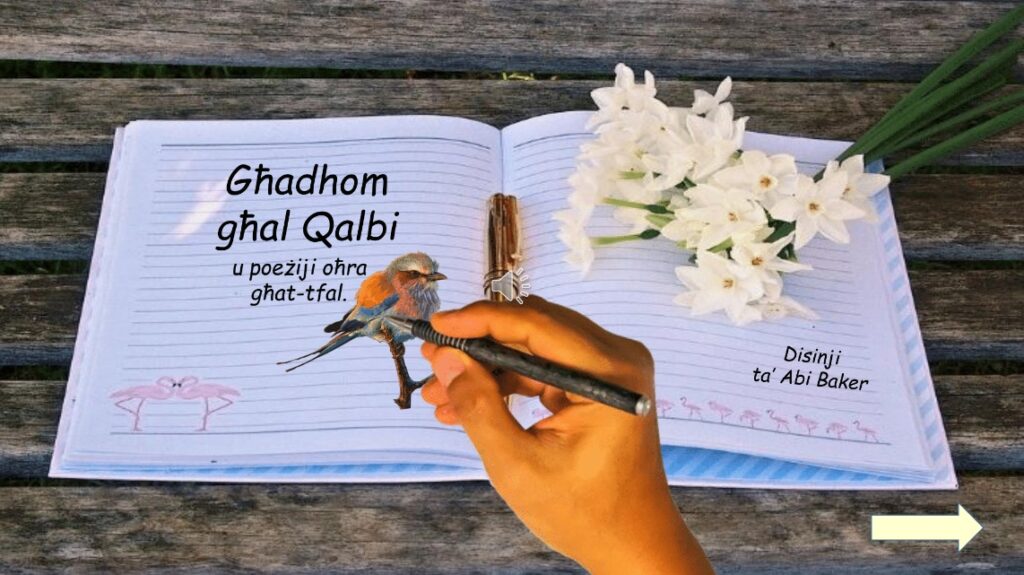 Għadhom
għal Qalbi
u poeżiji oħra
għat-tfal.
Disinji
ta’ Abi Baker